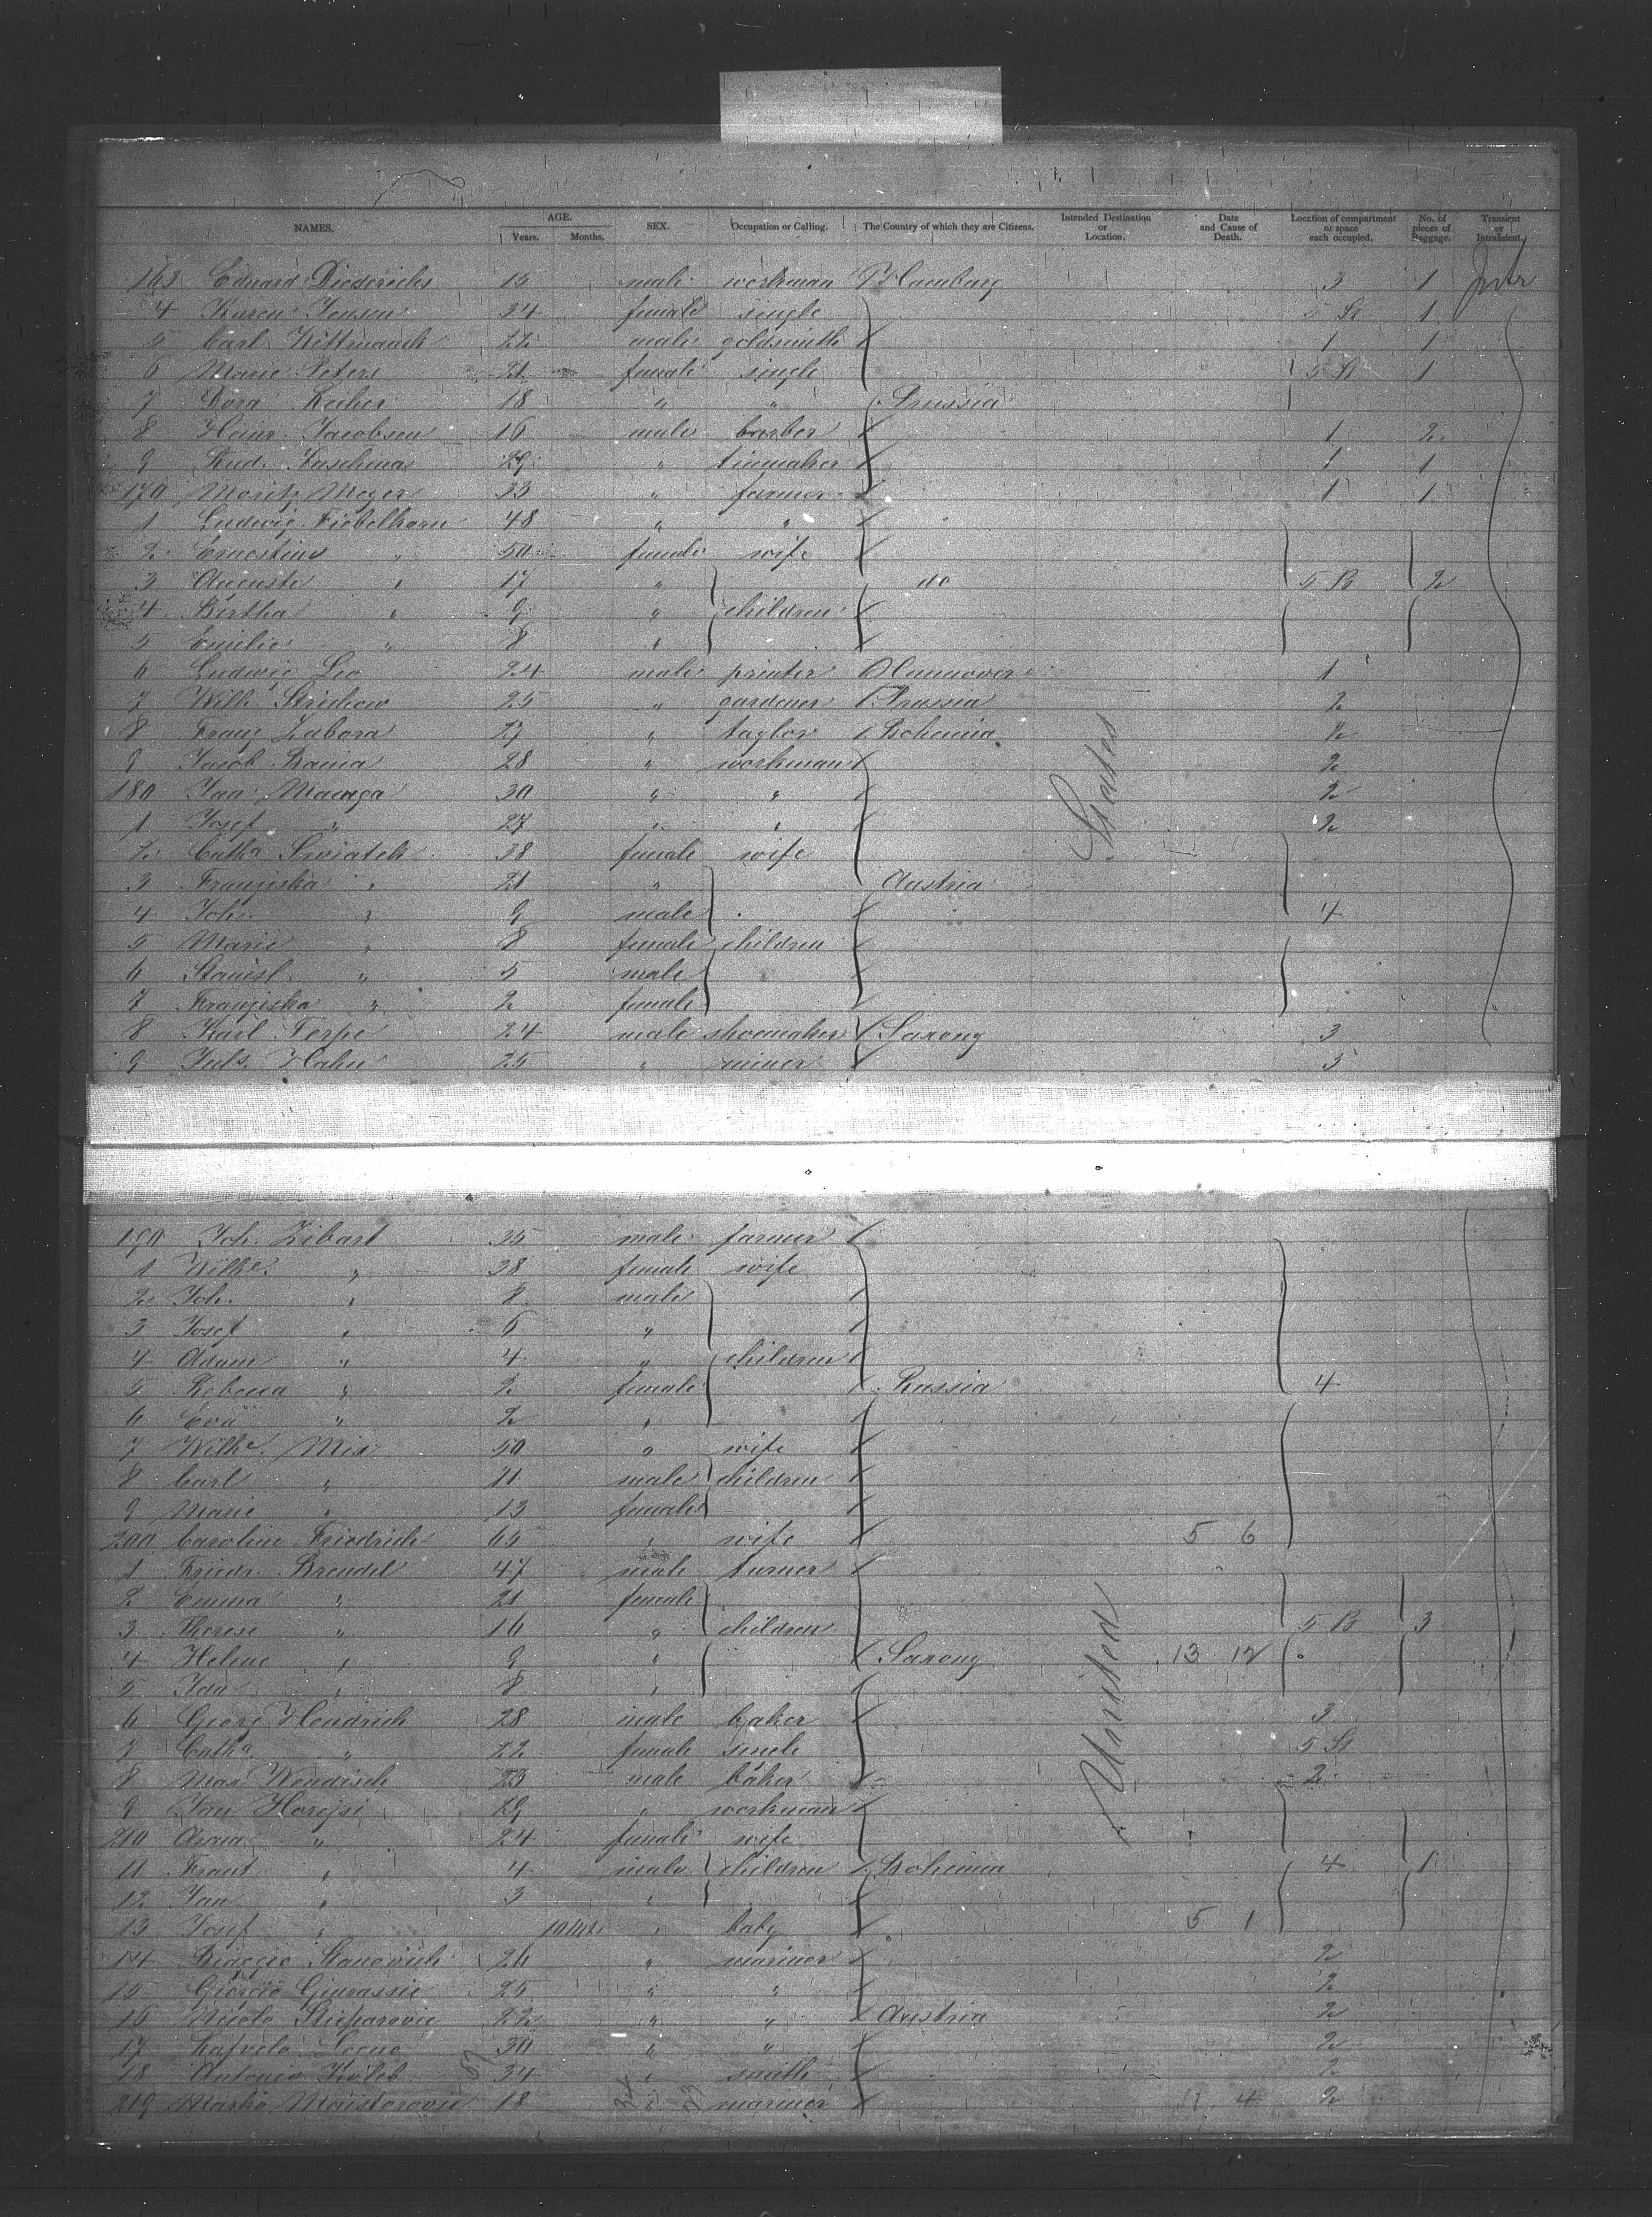 NAMES. AGE. Years. Months. SEX. Occupation or Calling. The Country of which they are Citizens. Intended Destination or Location. Date and Cause of Death. Location of compartment or space each occupied. No. of pieces of Baggage. Transient or Intransient.
163 Eduard Diederichs 15 male workman Hamburg 3 1
4 Karen Jensen 34 female single 5 St 1
5 Carl Wittmauck 22 male goldsmith 1 1
6 Marie Peters 21 female single 5 St 1
7 Dora 18 " " Prussia
8 Heinr. Jacobsen 16 male barber 1 2
9 Rud. 29 " 1 1
170 Moritz Meyer 33 " farmer 1 1
1 Ludwig Fiebelkorn 48 " "
2 Ernestine " 50 female wife
3 Auguste " 17 " do 5 B 2
4 Bertha " 9 " children
5 Emilie " 8 "
6 Ludwig Leo 24 male printer Hannover 1
7 Wilh. 25 " gardener Prussia 2
8 Franz Zabora 27 " taylor Bohemia 2
9 Jacob 28 " workman 2
180 Jan 30 " " 2
1 Josef " 27 " " 2
2 Catha Swiatek 38 female wife
3 Franziska " 21 " Austria
4 Joh. " 9 male 4
5 Marie " 8 female children
6 Stanisl. " 5 male
7 Franziska " 2 female
8 Karl Terpe 24 male shoemaker Saxony 3
9 Juls. Hahn 25 " miner 3
States
190 Joh. Zibart 35 male farmer
1 Wilhe. " 38 female wife
2 Joh. " 8 male
3 Josef " 6 "
4 Adam " 4 " children
5 Rebecca " 2 female Russia 4
6 Eva " 2 "
7 Wilhe. Mix 50 " wife
8 Carl " 21 male children
9 Marie " 13 female
200 Caroline Friedrich 65 " wife 5 6
1 Friedr. Brendel 47 male turner
2 Emma " 21 female
3 Therese " 16 " children 5 B 3
4 Helene " 9 " Saxony 13 12
5 Ida " 8 "
6 Georg Hendrich 28 male baker 3
7 Catha " 22 female single 5 St
8 Max Wendisch 23 male baker 2
9 Jan Horejsi 29 " workman
210 Anna " 24 female wife
11 Frant. " 4 male children Bohemia 4 1
12 Jan " 3 "
13 Josef " 10 " baby 5 1
14 Biaggio Stanovich 26 " mariner 2
15 Giorgio Giurassic 25 " " 2
16 Nicolo 22 " " Austria 2
17 30 " " 2
18 Antonio 34 " smith 2
219 Marko Maistorovic 18 " mariner 11 4 2
United